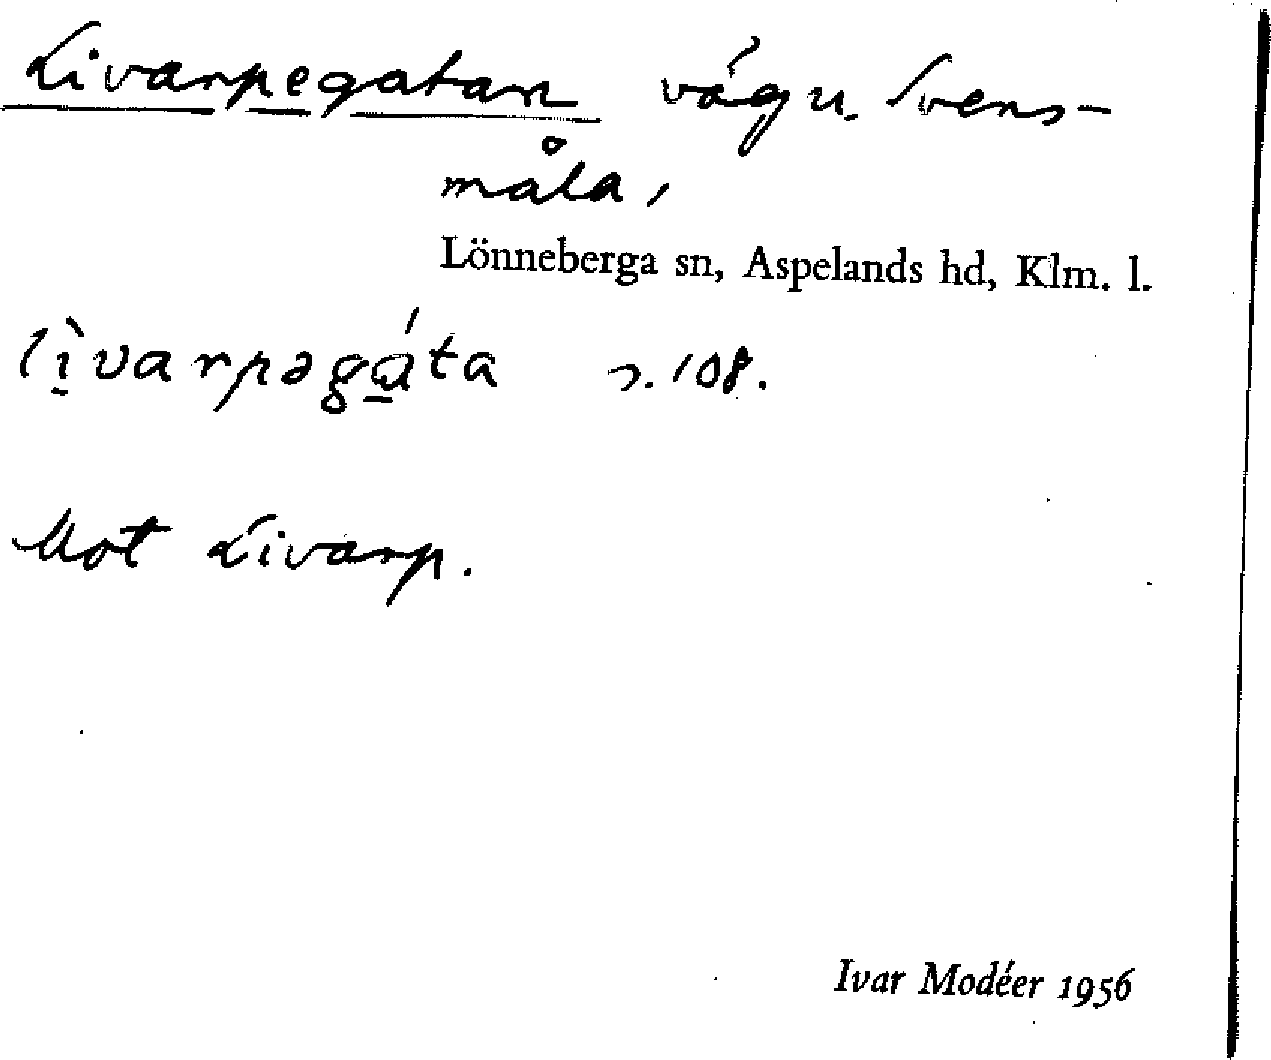 Livarpegatanväg u. Svens-
måla,
Lönneberga sn, Aspelands hd, Klm. l.
lìvarpəgáta s. 108.
Mot Livarp.
Ivar Modéer 1956